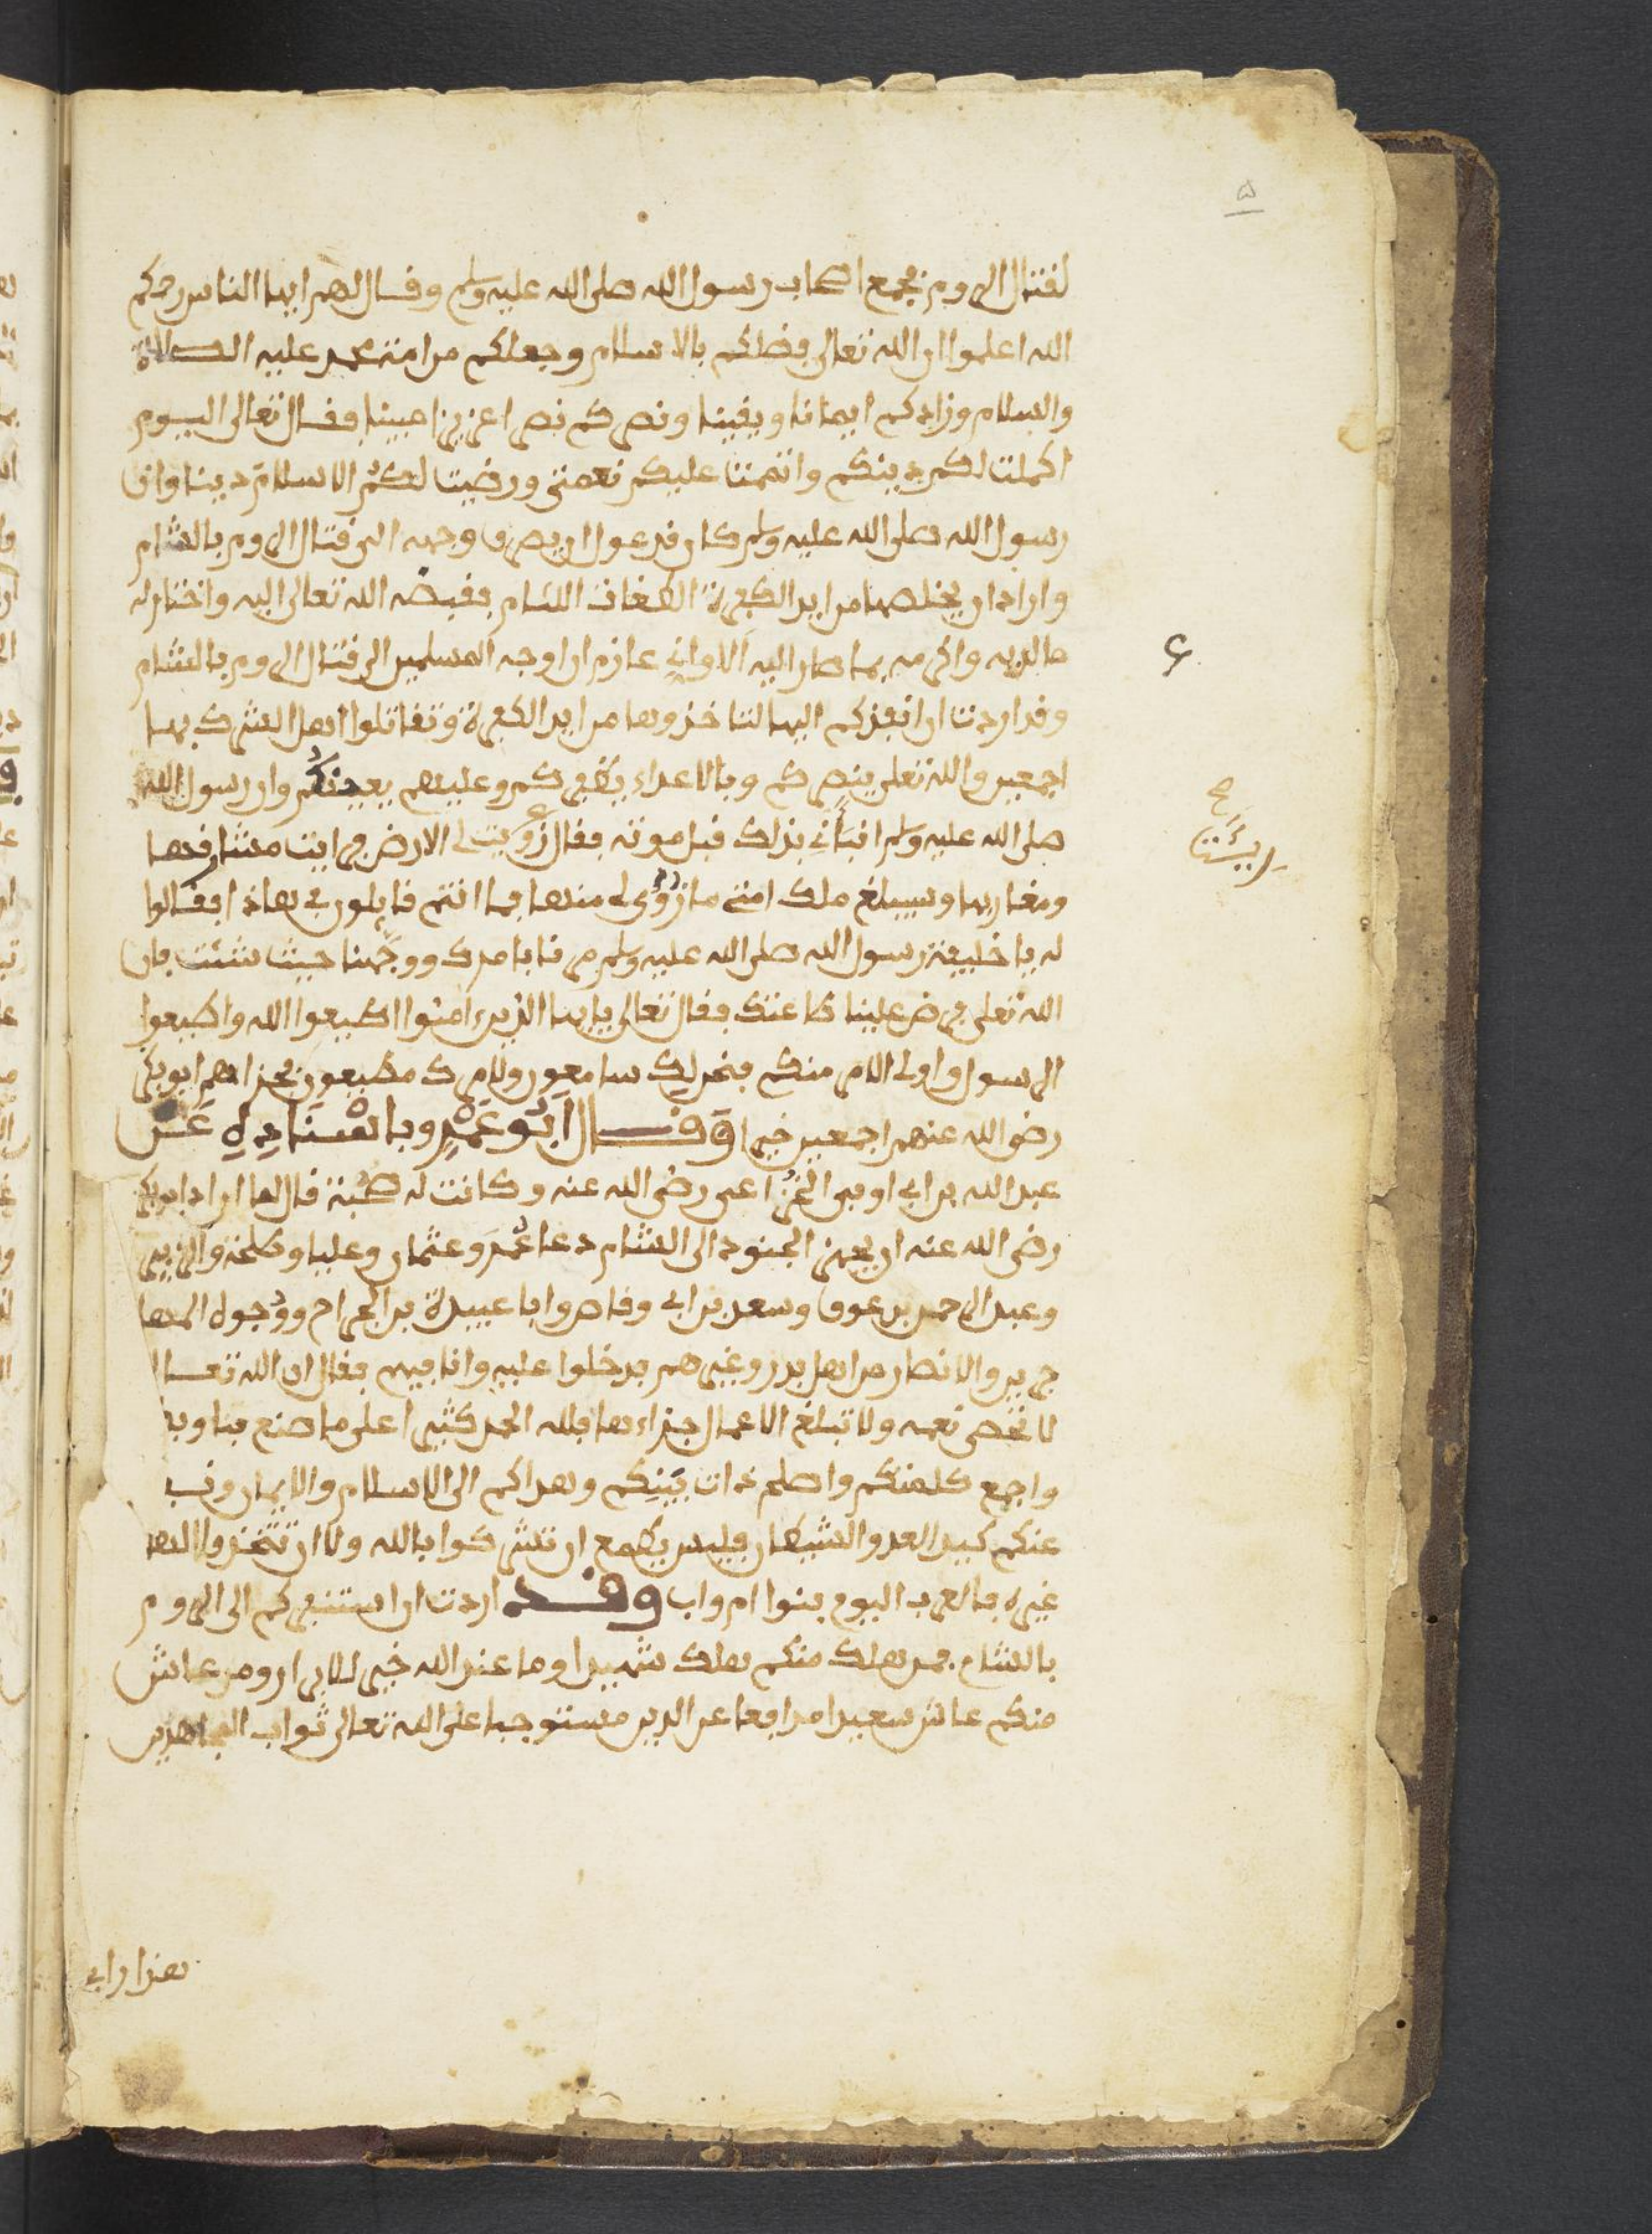 لقتال الروم فجمع اصحاب رسول الله صلى الله عليه وسلم وقال لهم ايها الناس رحمكم
الله اعلموا ان الله تعالى فضلكم بالاسلام وجعلكم من امة محمد عليه الصلاة
والسلام وزادكم ايمانا ويقينا ونصركم نصرا عزيزا مبينا وقال تعالى اليوم
اكملت لكم دينكم واتممت عليكم نعمتي ورضيت لكم الاسلام دينا وان
رسول الله صلى الله عليه وسلم كان قد عول ان يصرف وجهه الى قتال الروم بالشام
واراد ان يخلصها من ايد الكفرة الطغاة اللئام فقبضه الله تعالى اليه واختار له
ما لديه واكرمه بما صار اليه ألا واني عازم ان اوجه المسلمين الى قتال الروم بالشام
وقد اردت ان انفذكم اليها لتاخذوها من ايد الكفرة وتقاتلوا اهل الشرك بها
اجمعين والله تعلى ينصركم وبالاعداء يظفركم وعليهم يعينكم وان رسول الله
صلى الله عليه وسلم انبأني بذلك قبل موته فقال زويت لي الارض فرايت مشارقها
ومغاربها وسيبلغ ملك امتي ما زوي لي منها فما انتم قايلون في هاذا فقالوا
له يا خليفة رسول الله صلى الله عليه وسلم مرنا بامرك ووجهنا حيث شئت فان
الله تعلى فرض علينا طاعتك فقال تعالى يايها الذين ءامنوا اطيعوا الله واطيعوا
الرسول واولى الامر منكم فنحن لك سامعون ولامرك مطيعون فجزاهم ابو بكر
رضى الله عنهم اجمعين خيرا وقال ابو عمرو باسناده عن
عبد الله بن ابي اوفى الخزاعي رضى الله عنه وكانت له صحبة قال لما اراد ابو بكر
رضى الله عنه ان يجهز الجنود الى الشام دعا عمر وعثمان وعليا وطلحة والزبير
وعبد الرحمن بن عوف وسعد بن ابي وقاص وابا عبيدة بن الجراح ووجوه المها
جرين والانصار من اهل بدر وغيرهم فدخلوا عليه وانا فيهم فقال ان الله تعالى
لا تحصى نعمه ولا تبلغ الاعمال جزاءها فلله الحمد كثيرا على ما صنع بنا وبكم
واجمع كلمتكم واصلح ذات بينكم وهداكم الى الاسلام والايمان ونفى
عنكم كيد العدو الشيطان فليس يطمع ان تشركوا بالله ولا ان تتخذوا الاها
غيره فالعرب اليوم بنوا ام واب وقد اردت ان استنفركم الى الروم
بالشام فمن هلك منكم هلك شهيدا وما عند الله خير للابرار ومن عاش
منكم عاش سعيدا مدافعا عن الدين مستوجبا على الله تعالى ثواب المجاهدين
هذا رايي